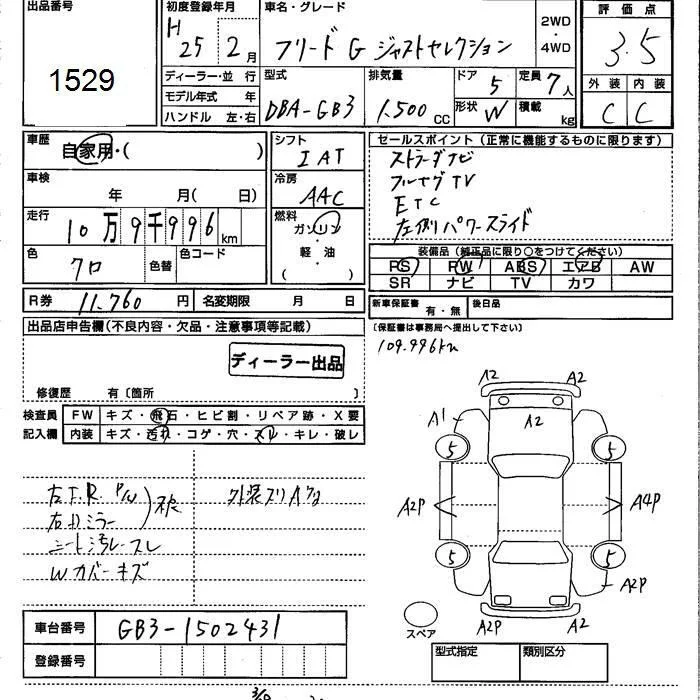 出品番号 初度登録年月 車名・グレード 評価点
1529 H 25 2月 フリード G ジャストセレクション 2WD・4WD 3.5
ディーラー・並行 型式 排気量 ドア 5 定員 7人 外装 内装
モデル年式 年 DBA-GB3 1.500 CC 形状 W 積載 kg C C
ハンドル 左・右
車歴 自家用・( ) シフト IAT セールスポイント(正常に機能するものに限ります)
車検 年 月(日) 冷房 AAC ストラーダナビ
フルセグTV
走行 10万9千996km 燃料 ガソリン・軽油 ( ) ETC
左側パワースライド
色 クロ 色替 色コード 装備品(純正品に限り○をつけてください)
PS PW ABS エアB AW
SR ナビ TV カワ
R券 11.760円 名変期限 月 日 新車保証書 有・無 後日品
出品店申告欄(不良内容・欠品・注意事項等記載) (保証書は事務局へ提出して下さい)
ディーラー出品 109.996km
修復歴 有〔箇所 〕
検査員 FW キズ・飛石・ヒビ割・リペア跡・X要
記入欄 内装 キズ・汚れ・コゲ・穴・スレ・キレ・破レ
A2 A2
A1 A2
5 5
A2P A4P
5 5
A2P
A2P A2
スペア
左F.R P/W
右ドミラー
シート汚レースレ
Wカバーキズ
外装スリキズ
車台番号 GB3-1502431
登録番号
型式指定 類別区分